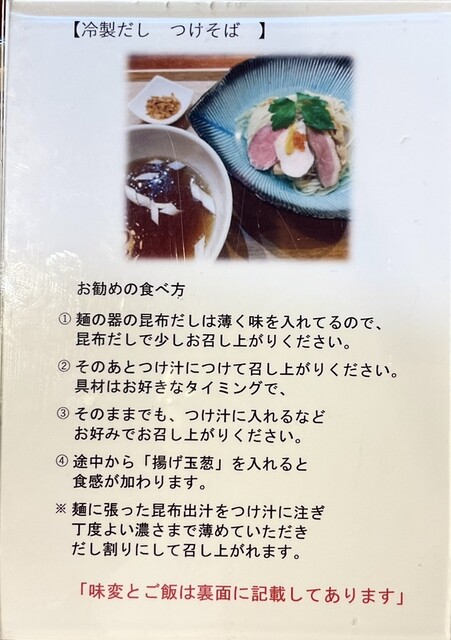 【冷製だし　つけそば　】
お勧めの食べ方
① 麺の器の昆布だしは薄く味を入れてるので、
昆布だしで少しお召し上がりください。
② そのあとつけ汁につけて召し上がりください。
具材はお好きなタイミングで、
③ そのままでも、つけ汁に入れるなど
お好みでお召し上がりください。
④ 途中から「揚げ玉葱」を入れると
食感が加わります。
※ 麺に張った昆布出汁をつけ汁に注ぎ
丁度よい濃さまで薄めていただき
だし割りにして召し上がれます。
「味変とご飯は裏面に記載してあります」